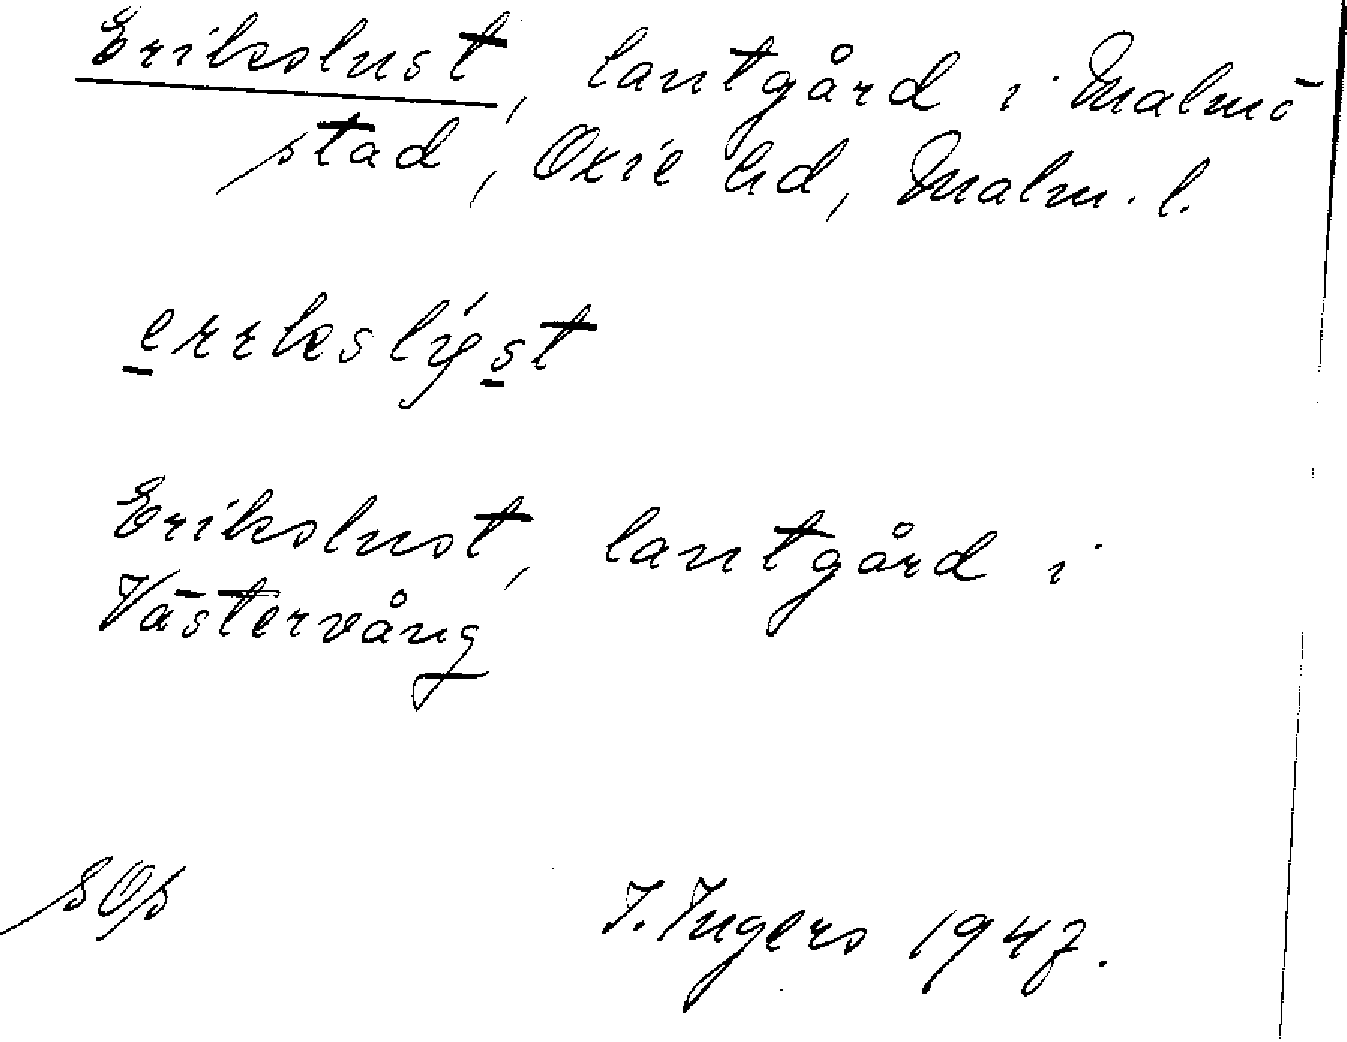 Erikslust, lantgård i Malmö
stad, Oxie hd, Malm. l.
Erikslust, lantgård i
Västervång
I. Ingers 1947.